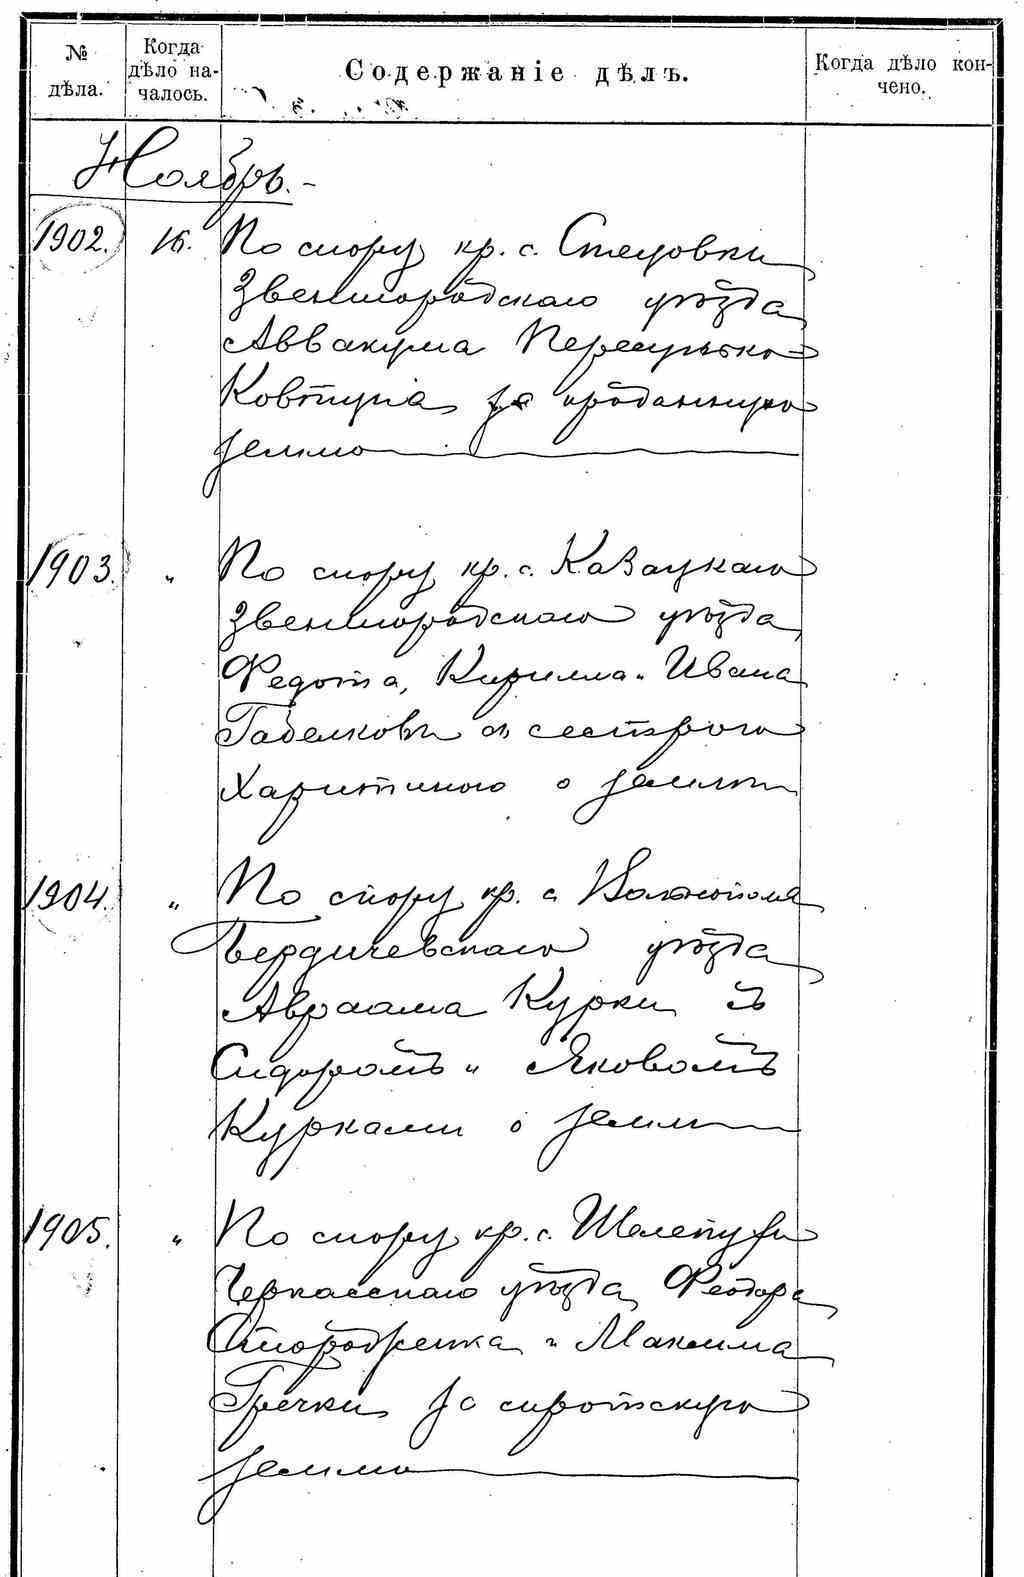 № дѣла.
Когда дѣло на-
чалось.
Содержаніе дѣлъ.
Когда дѣло кон-
чено.
Ноябрь.-
1902. 16. По спору кр. с. Стецовки
Звенигородскаго уѣзда
Аввакума
Ковтуна за проданную
землю
1903. " По спору кр. с. Казацкаго
Звенигородскаго уѣзда
Федота, Кирилла и Ивана
съ сестрою
Харитиною о землѣ
1904. " По спору кр. с.
Бердичевскаго уѣзда
Авраама Курки съ
Сидоромъ и Яковомъ
Курками о землѣ
1905. " По спору кр. с. Шелепухи
Черкасскаго уѣзда Феодора
Стороженка и Максима
Гречки за сиротскую
землю